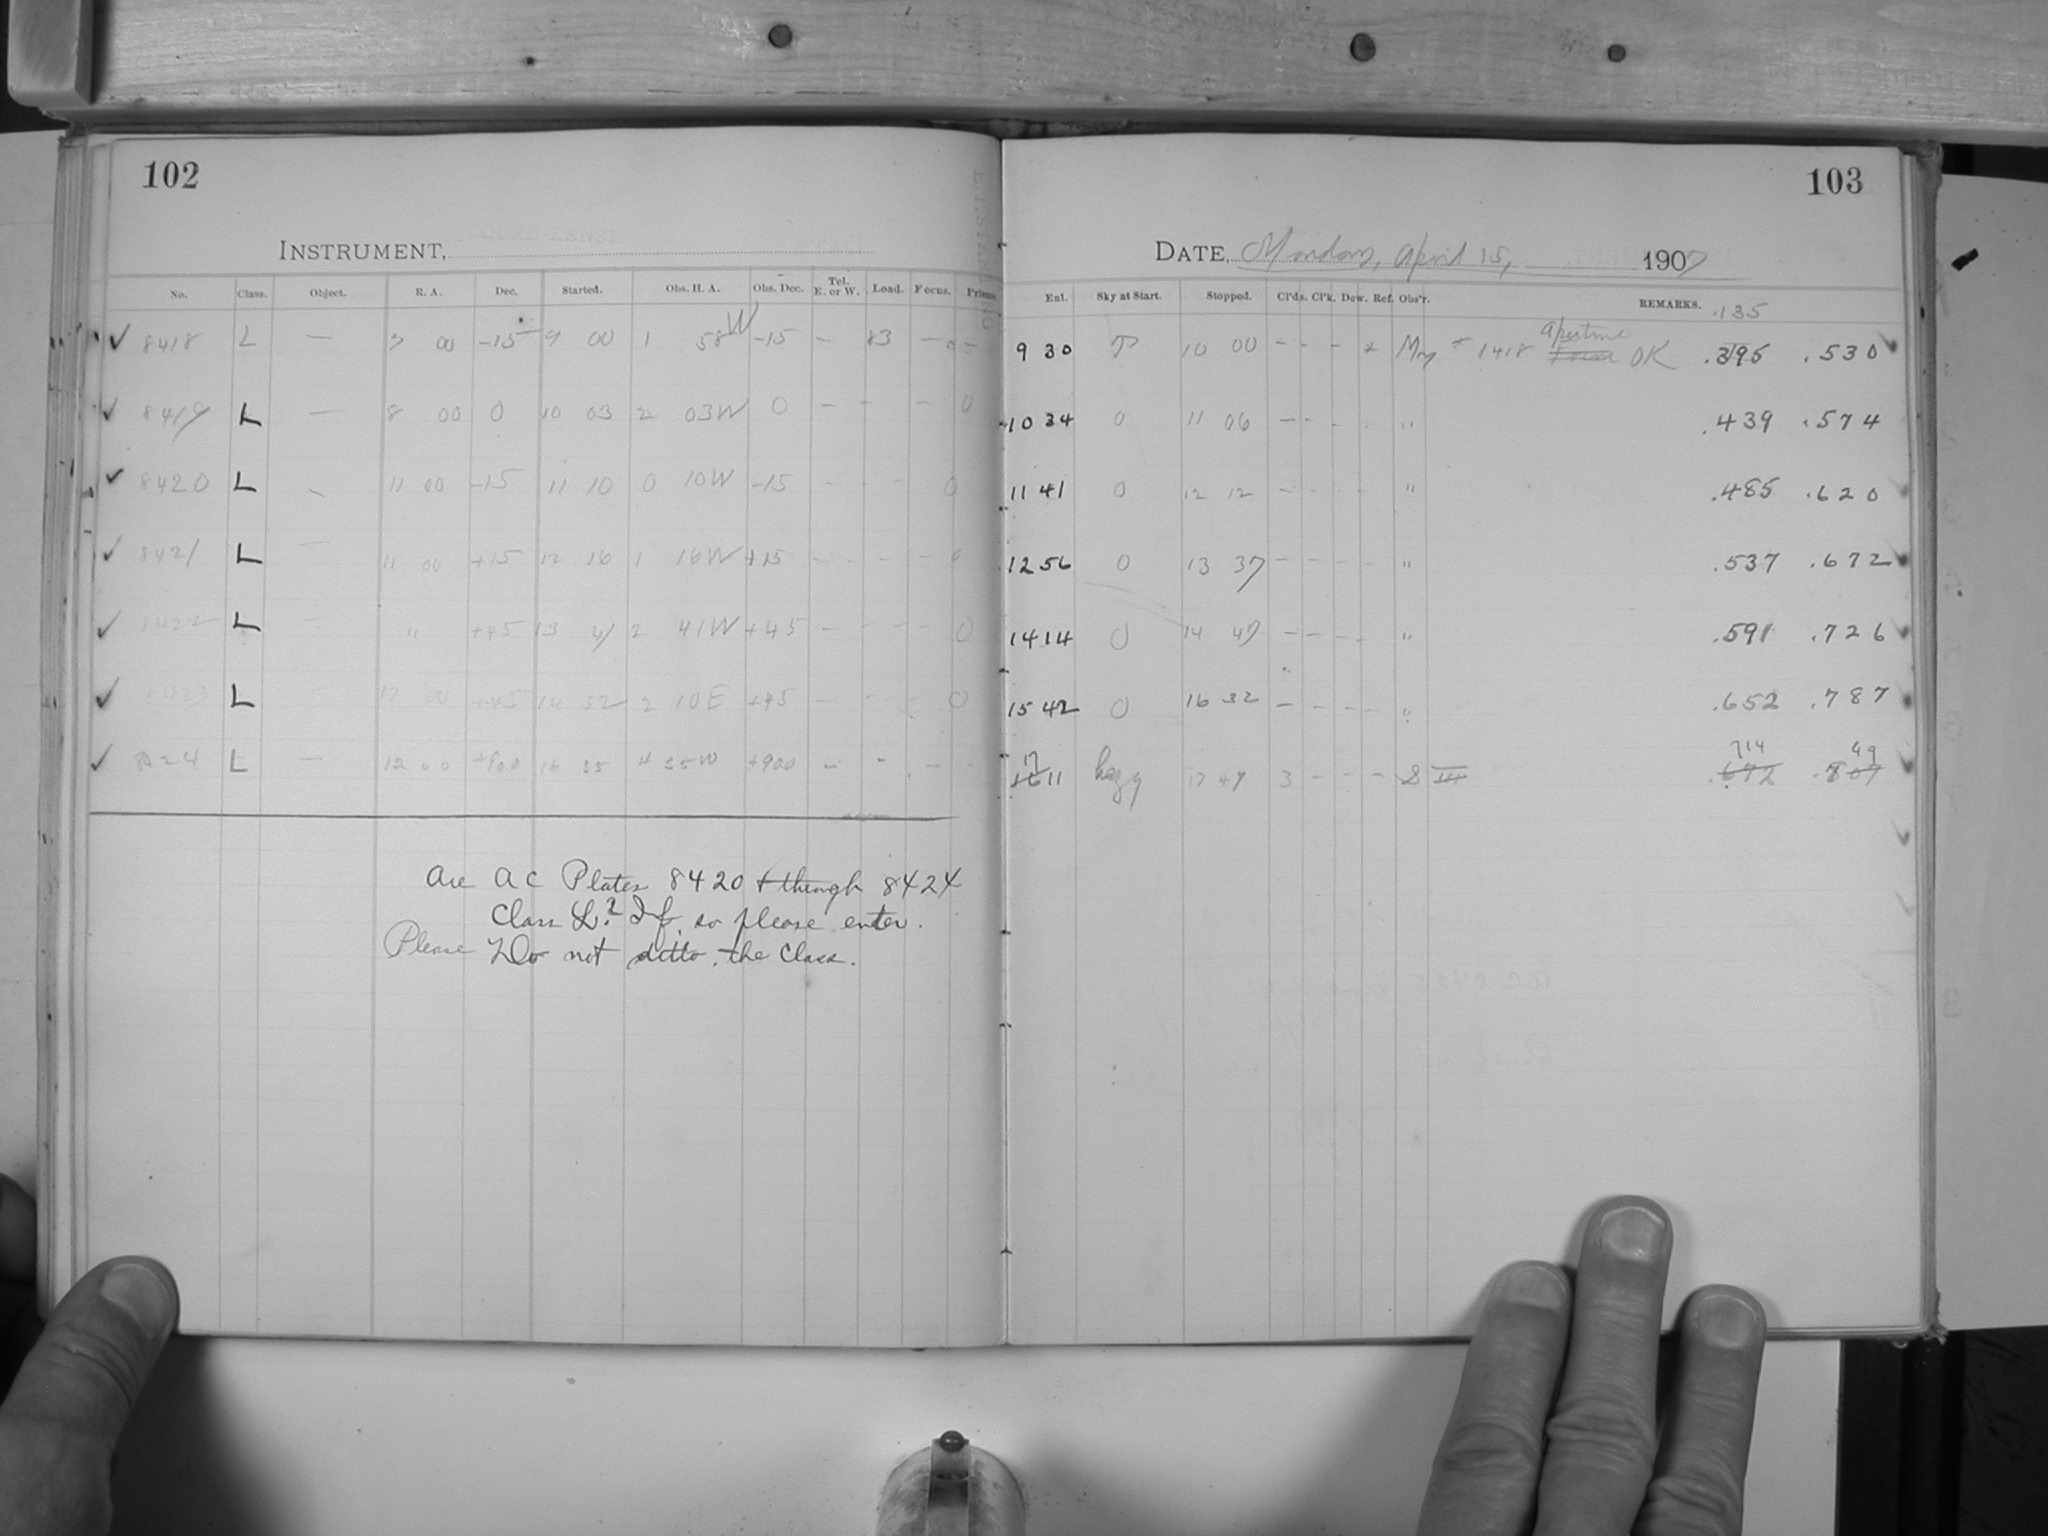 102
INSTRUMENT,
No. Class. Object. R. A. Dec. Started. Obs. H. A. Obs. Dec. Tel. E. or W. Load. Focus. Prisms.
8418 L — 7 00 -15 9 00 1 58W -15 — 83 — —
8419 L — 8 00 0 10 03 2 03W 0 — — — 0
8420 L — 11 00 -15 11 10 0 10W -15 - - - 0
8421 L — 11 00 +15 12 16 1 16W +15 - - - - 0
8422 L — " +45 13 41 2 41W +45 - - - 0
8423 L — 17 00 +45 14 52 2 10E +45 — - - 0
8424 L — 12 00 +900 16 35 4 35W +900 — - - -
are AC Plates 8420 though 8424
Class L? If so please enter.
Please Do not ditto the Class.
103
DATE, Monday, April 15, 1907
Ent. Sky at Start. Stopped. Cl'ds. Cl'k. Dew. Ref. Obs'r. REMARKS. .135
9 30 10 00 - - - 1418 aperture OK .395 .530
10 34 0 11 06 - - - - " .439 .574
11 41 0 12 12 - - - - " .485 .620
12 56 0 13 37 - - - - " .537 .672
14 14 0 14 47 - - - - " .591 .726
15 42 0 16 32 - - - - " .652 .787
17 11 hazy 17 47 3 - - - S III 714 672 49 .807